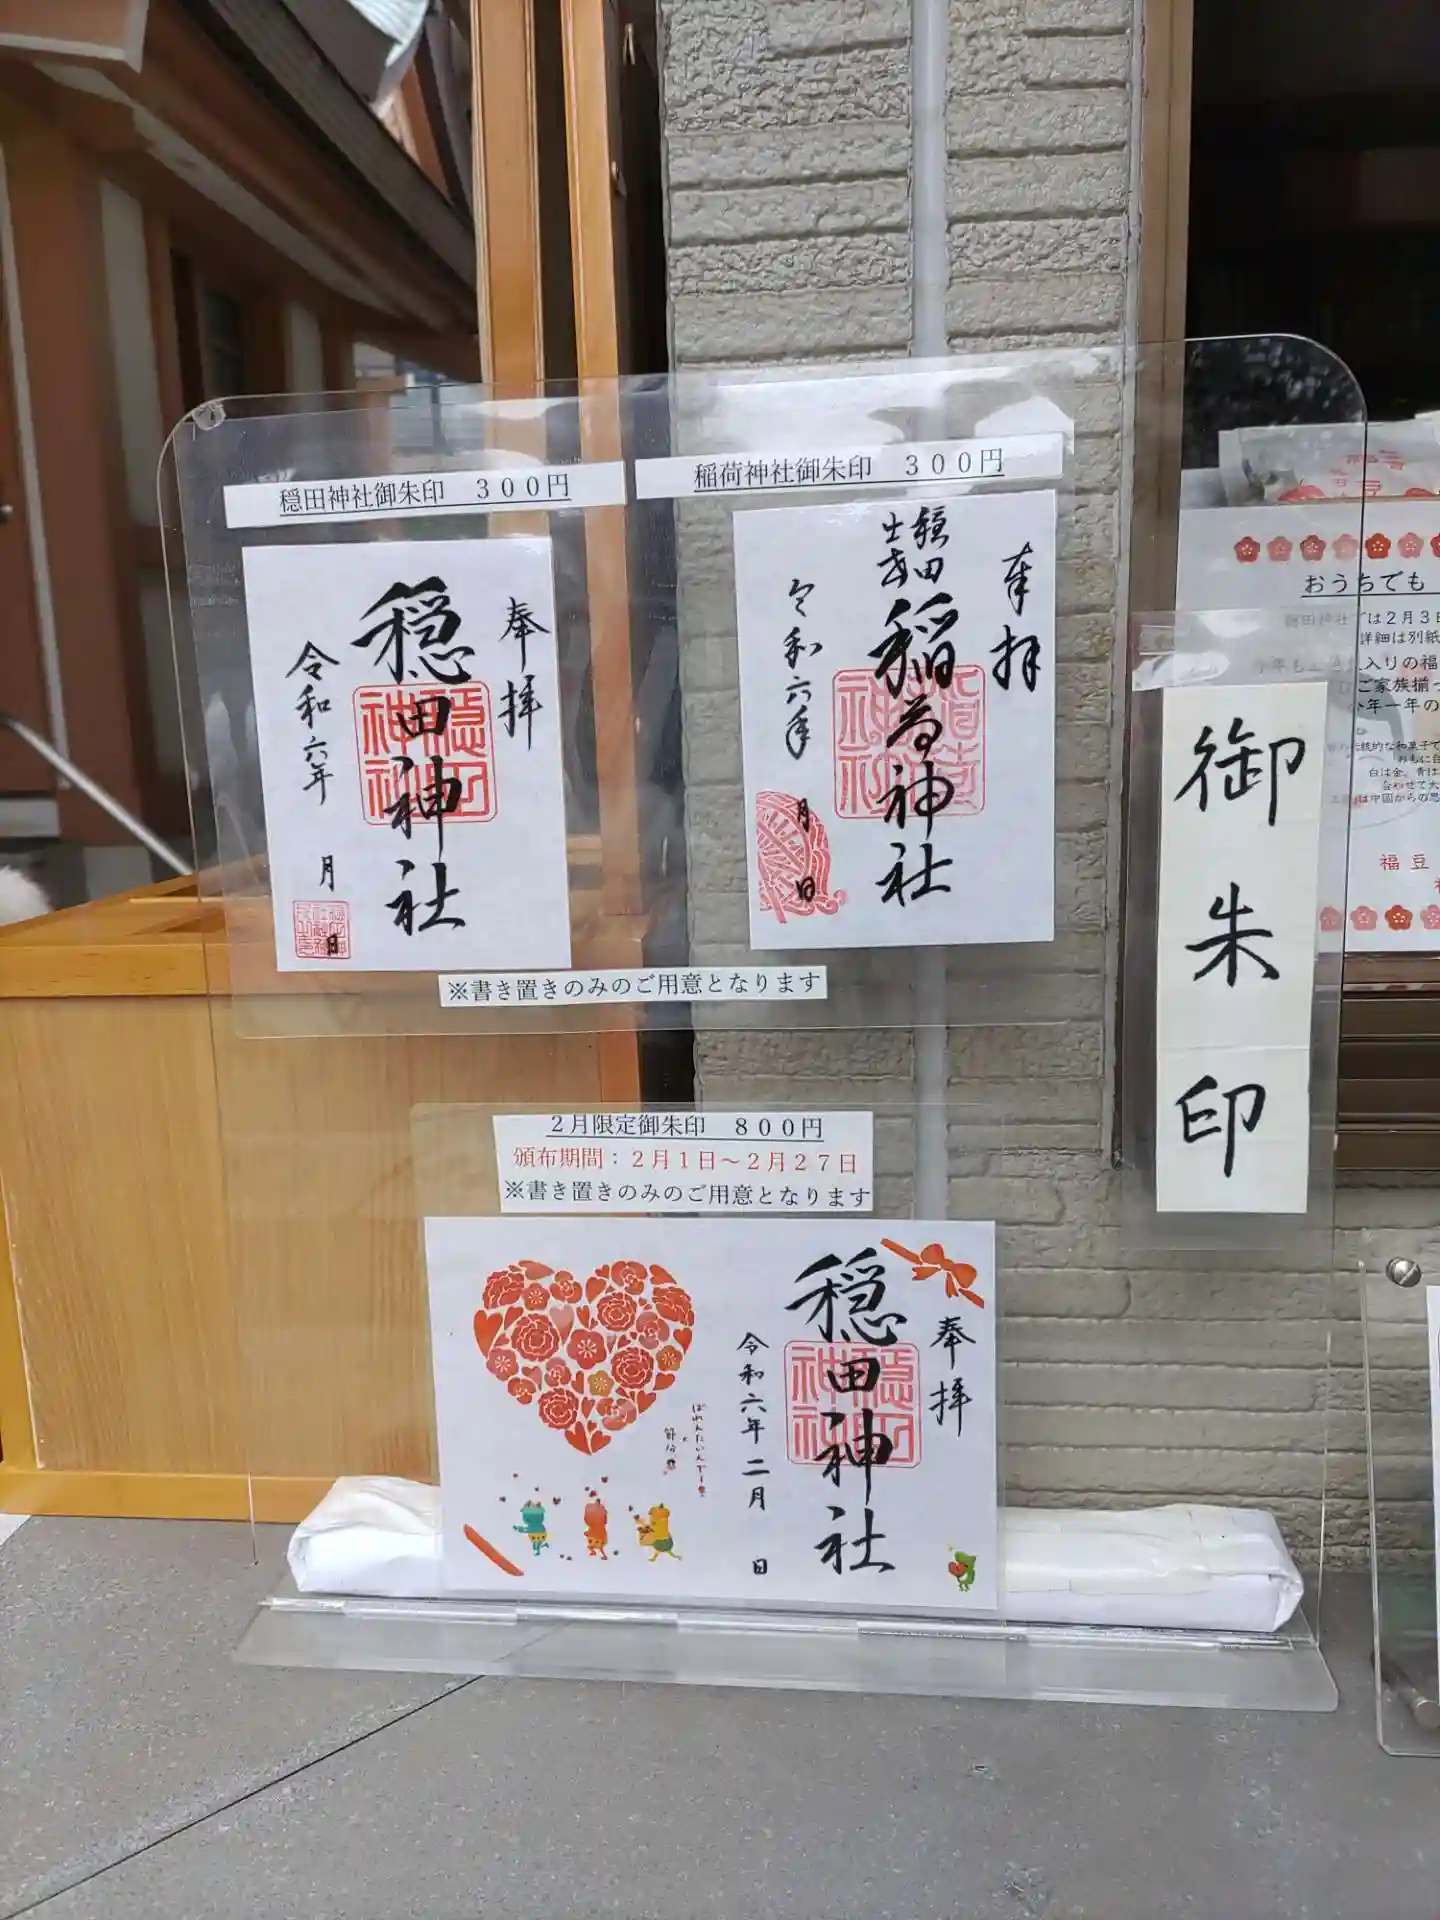 穏田神社御朱印　３００円
奉拝
穏田神社
令和六年
月
日
稲荷神社御朱印　３００円
奉拝
穏田
稲荷神社
令和六年
月
日
※書き置きのみのご用意となります
２月限定御朱印　８００円
頒布期間：２月１日～２月２７日
※書き置きのみのご用意となります
奉拝
穏田神社
令和六年二月
日
ばれんたいんでー
節分
御朱印
おうちでも
穏田神社では２月３日
詳細は別紙
入りの福
ご家族揃っ
今年一年の
伝統的な和菓子で
白は金、青は
合わせて大
は中国からの思
福豆